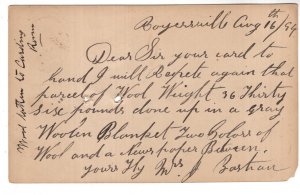 Royersville Aug 16th/94
Dear Sir your card to
hand I will Repete again that
parcel of Wool Weight 36 Thirty
six pounds done up in a gray
Woolen Blanket Two Colors of
Wool and a Newspaper Between,
yours Try Mrs J
Bastian
Wool Letter to Carding
Room